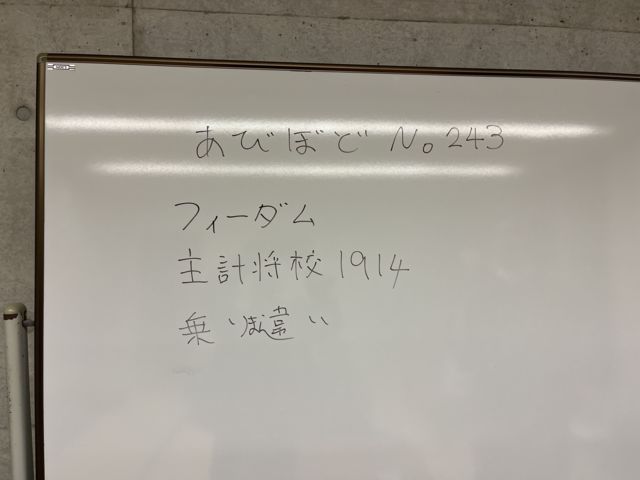 あびぼど No.243
フィーダム
主計将校1914
乗いば違い